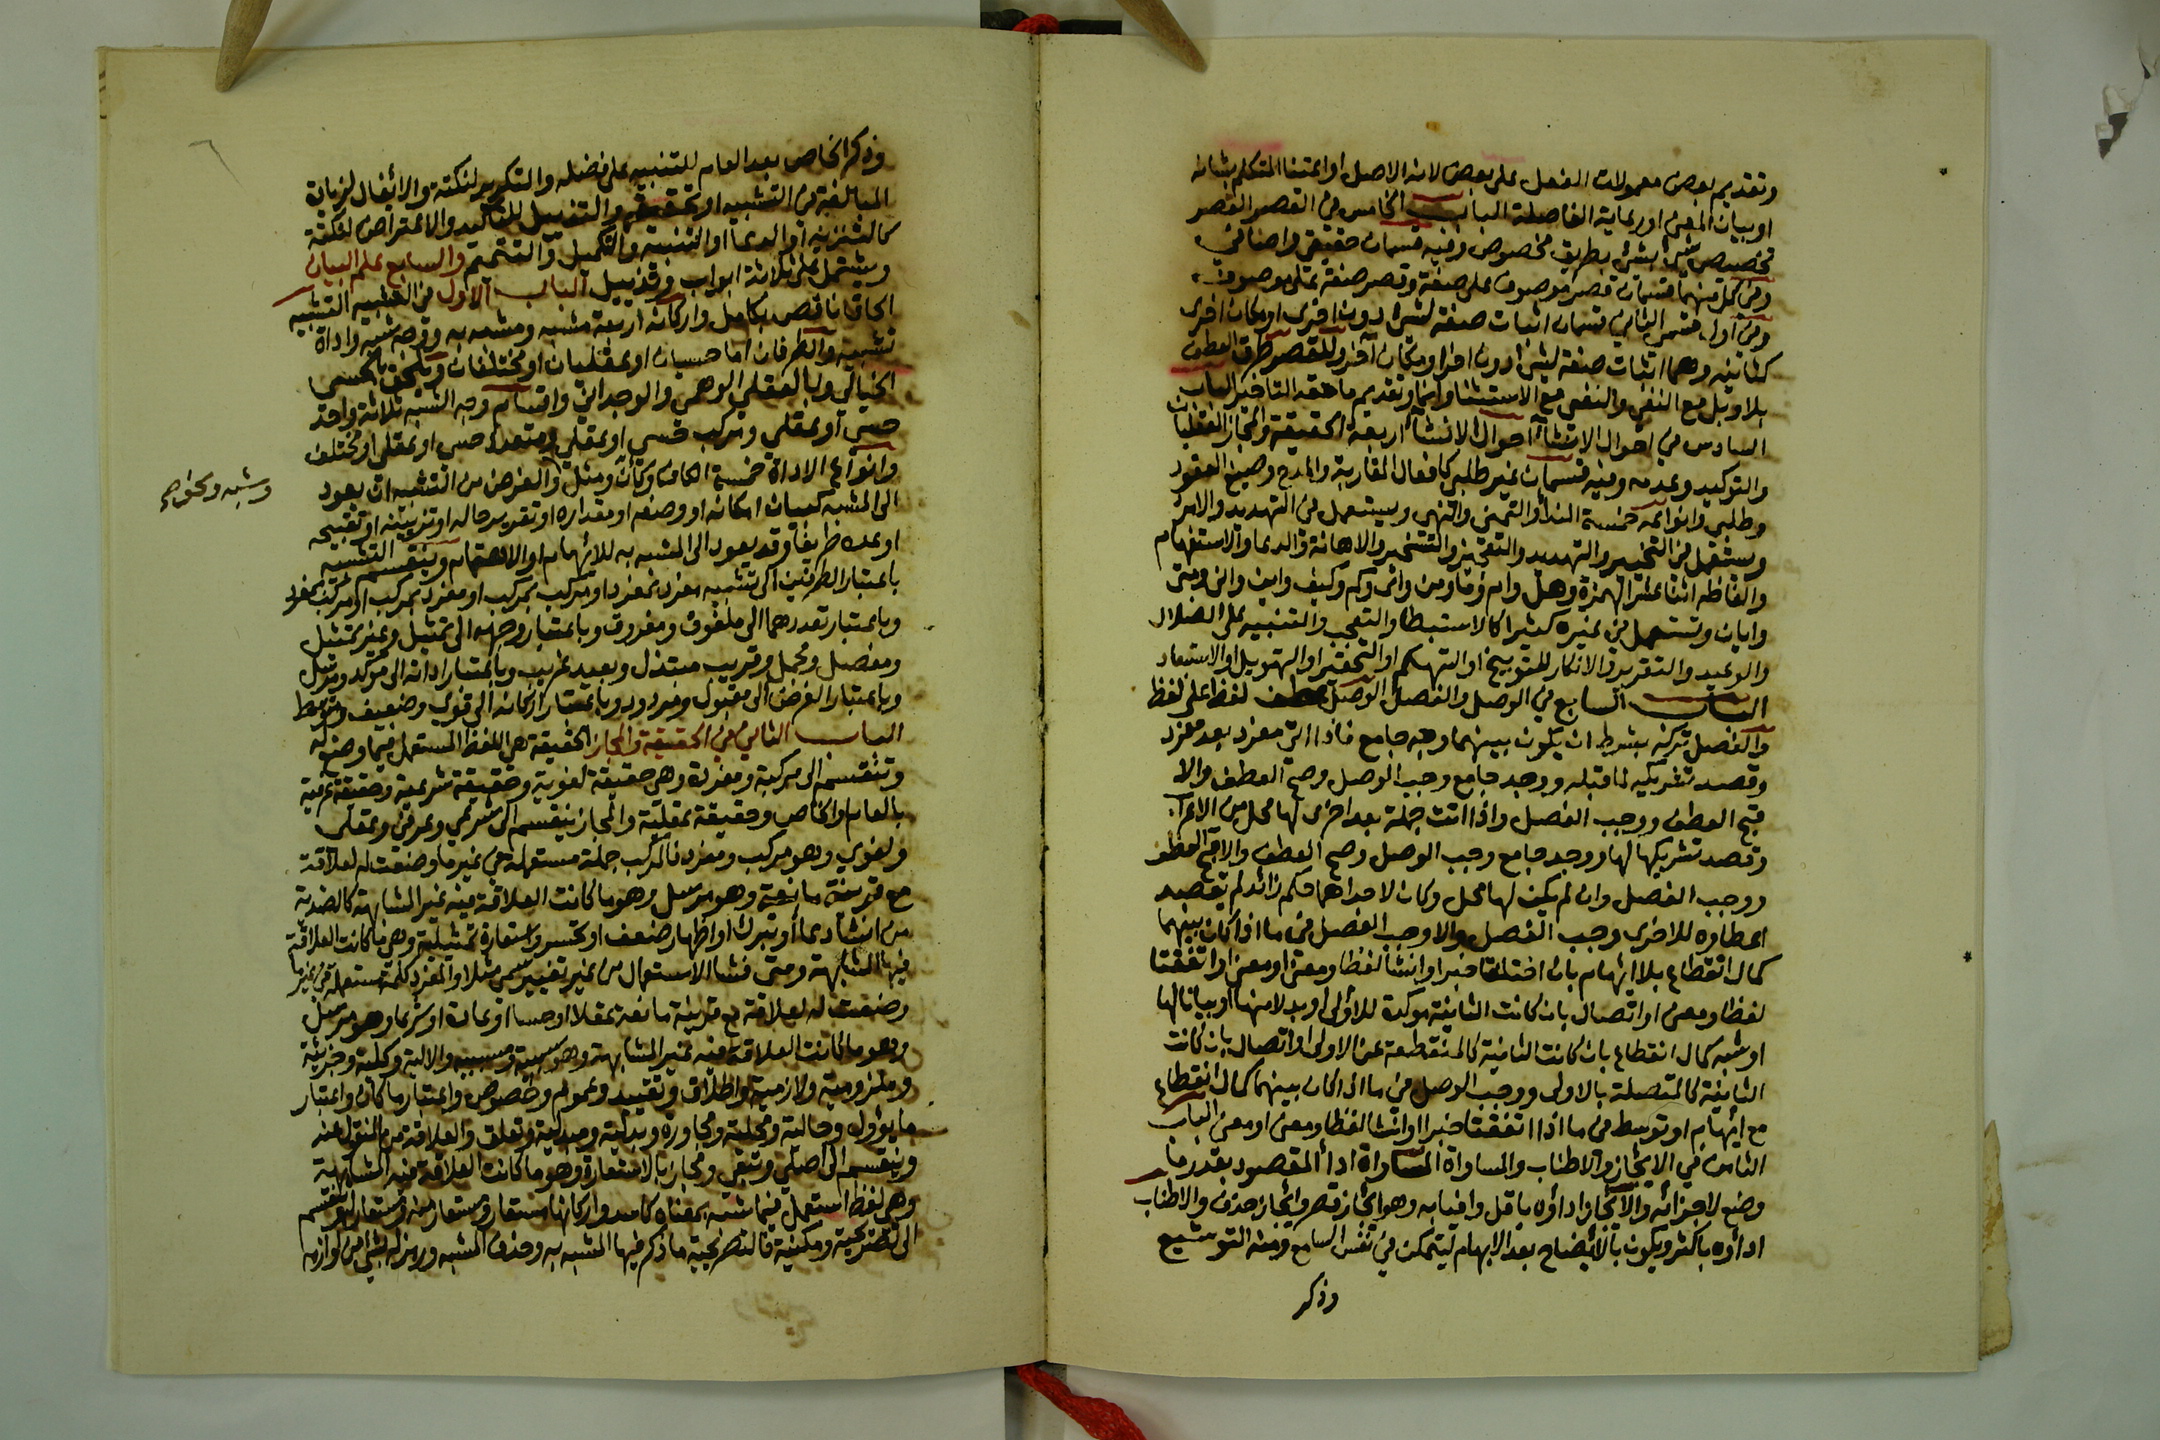 وتقديم بعض معمولات الفعل على بعض لانه الاصل او اعتنا المتكلم بشانه
او بيان المعنى او رعاية الفاصلة الباب الخامس في القصر القصر
تخصيص شئ بشئ بطريق مخصوص وفيه قسمان حقيقي واضافي
وفي كل منهما قسمان قصر موصوف على صفة وقصر صفة على موصوف
وفي اول قسمي الثاني قسمان اثبات صفة لشئ دون اخرى او مكان اخرى
كثانيه وهما اثبات صفة لشئ دون اخر او مكان آخر وللقصر طرق العطف
بلا وبل مع النفي والنفي مع الاستثنا وانما وتقديم ما حقه التاخير الباب
السادس في احوال الانشآ احوال الانشآ اربعة الحقيقة والمجاز العقليان
والتوكيد وعدمه وفيه قسمان غير طلبي كافعال المقاربة والمدح وصيغ العقود
وطلبي وانواعه خمسة الندآ والتمني والنهي ويستعمل في التهديد والامر
ويستعمل في التخيير والتهديد والتعجيز والتسخير والاهانة والدعا والاستفهام
والفاظه اثنا عشر الهمزة وهل وام وما ومن واي وكم وكيف واين وانى ومتى
وايان وتستعمل في غيره كثيرا كالاستبطا والتعجب والتنبيه على الضلال
والوعيد والتقرير والانكار للتوبيخ او التهكم او التحقير او التهويل او الاستبعاد
الباب السابع في الوصل والفصل الوصل عطف لفظ على لفظ
والفصل تركه بشرط ان يكون بينهما وجه جامع فاذا اتى مفرد بعد مفرد
وقصد تشريكه لما قبله ووجد جامع وجب الوصل وصح العطف والا
قبح العطف ووجب الفصل واذا اتت جملة بعد اخرى لها محل من الاعراب
وقصد تشريكها لها ووجد جامع وجب الوصل وصح العطف والا قبح العطف
ووجب الفصل وان لم يكن لها محل وكان لاحداهما حكم زائد لم تقصد
اعطاوه للاخرى وجب الفصل والا وجب الفصل في ما اذا كان بينهما
كمال انقطاع بلا ايهام بان اختلفتا خبرا وانشآ لفظا ومعنى او معنى او اتفقتا
لفظا ومعنى او اتصال بان كانت الثانية موكدة للاولى او بدلا منها او بيانا لها
او شبه كمال انقطاع بان كانت الثانية كالمنقطعة عن الاولى او اتصال بان كانت
الثانية كالمتصلة بالاولى ووجب الوصل في ما اذا كان بينهما كمال انقطاع
مع ايهام او توسط في ما اذا اتفقتا خبرا او انشا لفظا ومعنى او معنى الباب
الثامن في الايجاز والاطناب والمساواة المساواة ادآ المقصود بقدر ما
وضع لاجزائه والايجاز اداؤه باقل وافيا به وهو ايجاز قصر وايجاز حذف والاطناب
اداؤه باكثر ويكون بالايضاح بعد الابهام ليتمكن في نفس السامع ومنه التوشيع
وذكر
وذكر الخاص بعد العام للتنبيه على فضله والتكرير لنكتة والايغال لزيادة
المبالغة في التشبيه او تحقيقه والتذييل للتأكيد والاعتراض لنكتة
كالتنزيه او الدعآ او التنبيه والتكميل والتتميم والسابع علم البيان
ويشتمل على ثلاثة ابواب وتذييل الباب الاول في التشبيه التشبيه
الحاق ناقص بكامل واركانه اربعة مشبه ومشبه به ووجه شبه واداة
تشبيه والطرفان اما حسيان او عقليان او مختلفان ويلحق بالحسى
الخيالي وبالعقلي الوهمي والوجداني واقسام وجه الشبه ثلاثة واحد
حسي او عقلي ومركب حسي او عقلي ومتعدد حسي او عقلي او مختلف
وانواع الاداة خمسة الكاف وكأن ومثل والغرض من التشبيه ان يعود
وشبه ونحو صح
الى المشبه كبيان امكانه او وصفه او مقداره او تقرير حاله او تزيينه او تقبيحه
او عده ظريفا وقد يعود الى المشبه به للايهام او الاهتمام وينقسم التشبيه
باعتبار الطرفين الى تشبيه مفرد بمفرد او مركب بمركب او مفرد بمركب او مركب بمفرد
وباعتبار تعددهما الى ملفوف ومفروق وباعتبار وجهه الى تمثيل وغير تمثيل
ومفصل ومجمل وقريب مبتذل وبعيد غريب وباعتبار اداته الى موكد ومرسل
وباعتبار الغرض الى مقبول ومردود وباعتبار اركانه الى قوي وضعيف ومتوسط
الباب الثاني في الحقيقة والمجاز الحقيقة هي اللفظ المستعمل فيما وضع له
وتنقسم الى مركبة ومفردة وهي حقيقة لغوية وحقيقة شرعية وحقيقة عرفية
بالعام والخاص وحقيقة عقلية والمجاز ينقسم الى شرعي وعرفي وعقلي
ولغوي وهو مركب ومفرد فالمركب جملة مستعملة في غير ما وضعت له لعلاقة
مع قرينة مانعة وهو مرسل وهو ما كانت العلاقة فيه غير المشابهة كالضدية
من انشآ دعا او تبرك او اظهار ضعف او تحسر واستعارة تمثيلية وهي ما كانت العلاقة
فيها المشابهة ومتى فشا الاستعمال من غير تغيير سمي مثلا والمفرد كلمة مستعملة في غير ما
وضعت له لعلاقة مع قرينة مانعة عقلا او حسا او عادة او شرعا وهو مرسل
وهو ما كانت العلاقة فيه غير المشابهة وهو سببية ومسببية والالية وكلية وجزئية
وملزومية ولازمية واطلاق وتقييد وعموم وخصوص واعتبار ما كان واعتبار
ما يؤول وحالية ومحلية ومجاورة وبدلية ومبدلية وتعلق والعلاقة من المنقول عنه
وينقسم الى اصلي وتبعي ومجاز بالاستعارة وهو ما كانت العلاقة فيه المشابهة
وهي لفظ استعمل فيما شبه بمعناه كاسد واركانها مستعار ومستعار منه ومستعار له وتنقسم
الى تصريحية ومكنية فالتصريحية ما ذكر فيها المشبه به وحذف المشبه ورمز له بشئ من لوازمه